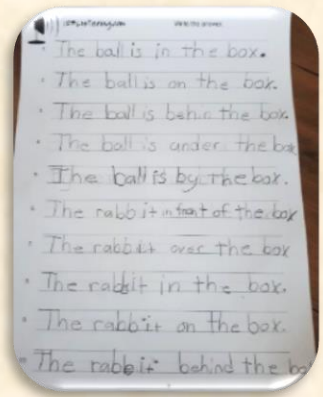 Write the answer
The ball is in the box.
The ball is on the box.
The ball is behin the box.
The ball is under the box
The ball is by the box.
The rabbit in front of the box
The rabbit over the box
The rabbit in the box.
The rabbit on the box.
The rabbit behind the bo